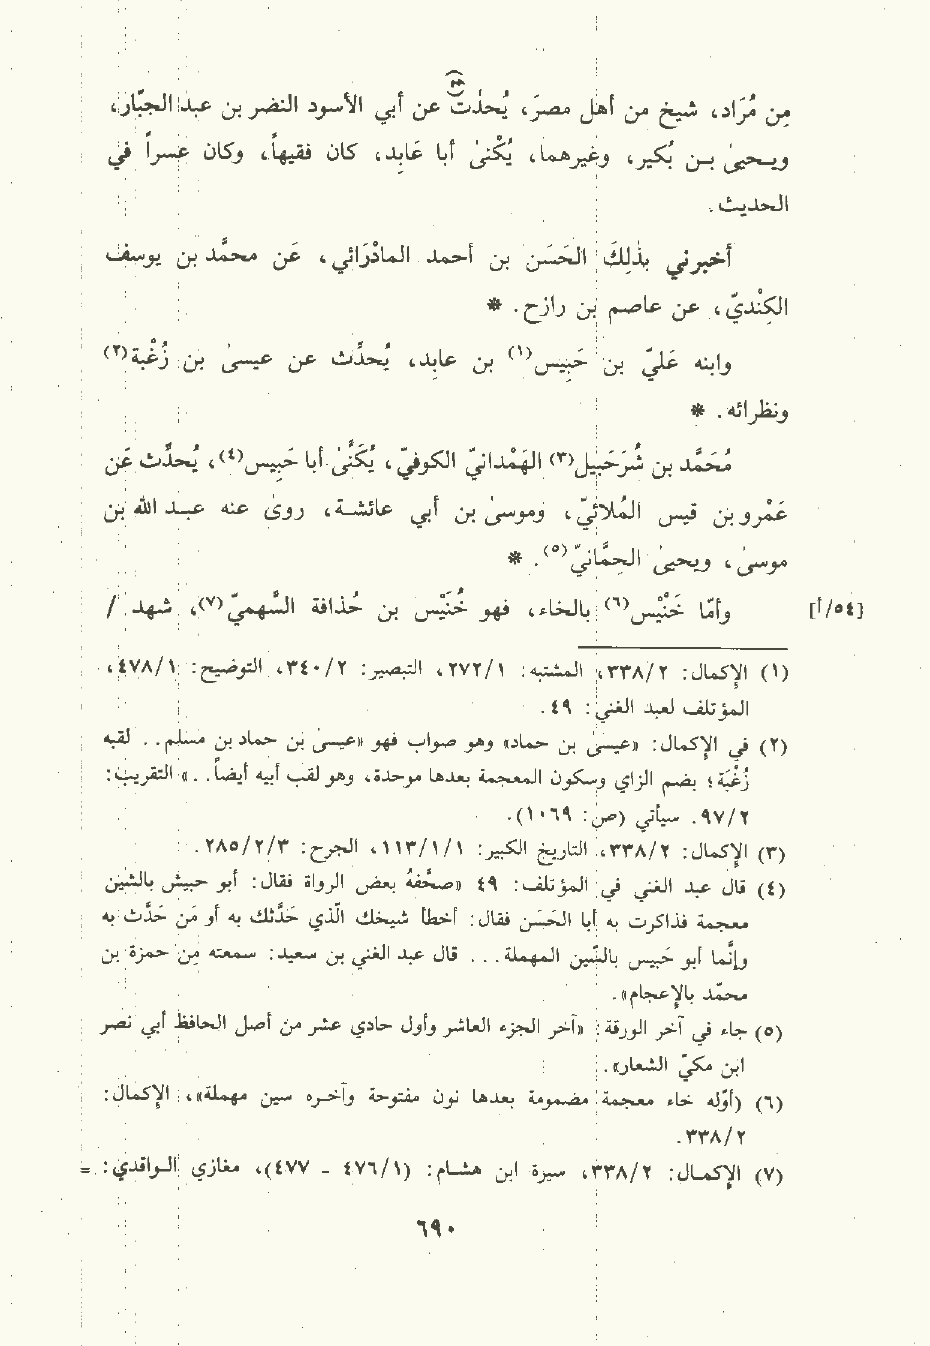 مِن مُرَاد، شيخ من أهل مصرَ، يُحدّث عن أبي الأسود النضر بن عبد الجبّار،
ويحيىٰ بن بُكير، وغيرهما، يُكْنىٰ أبا عَابِد، كان فقيهاً، وكان عسراً في
الحديث.
أخبرني بذلِكَ الحَسَن بن أحمد المادْرَائي، عَن محمّد بن يوسف
الكِنْديّ، عن عاصم بن رازح. *
وابنه عَليّ بن حَبِيس(١) بن عابِد، يُحدِّث عن عيسىٰ بن زُغْبة(٢)
ونظرائه. *
مُحَمَّد بن شُرَحبيل(٣) الهَمْدانيّ الكوفيّ، يُكَنَّىٰ أبا حَبِيس(٤)، يُحدِّث عَن
عَمْرو بن قيس المُلائيّ، وموسىٰ بن أبي عائشة، روىٰ عنه عبد الله بن
موسىٰ، ويحيىٰ الحِمَّانيّ(٥). *
وأمّا خُنَيْس(٦) بالخاء، فهو خُنَيْس بن حُذافة السَّهميّ(٧)، شهد / [٥٤/أ]
(١) الإِكمال: ٣٣٨/٢، المشتبه: ٢٧٢/١، التبصير: ٣٤٠/٢، التوضيح: ٤٧٨/١،
المؤتلف لعبد الغني: ٤٩.
(٢) في الإِكمال: «عيسىٰ بن حماد» وهو صواب فهو «عيسىٰ بن حماد بن مسلم.. لقبه
زُغْبَة؛ بضم الزاي وسكون المعجمة بعدها موحدة، وهو لقب أبيه أيضاً..» التقريب:
٩٧/٢. سيأتي (ص: ١٠٦٩).
(٣) الإِكمال: ٣٣٨/٢، التاريخ الكبير: ١١٣/١/١، الجرح: ٢٨٥/٢/٣.
(٤) قال عبد الغني في المؤتلف: ٤٩ «صحَّفهُ بعض الرواة فقال: أبو حبيش بالشين
معجمة فذاكرت به أبا الحَسن فقال: أخطأ شيخك الّذي حَدَّثك به أو مَن حَدَّث به
وإنَّما أبو حَبيس بالسِّين المهملة... قال عبد الغني بن سعيد: سمعته مِن حمزة بن
محمّد بالإِعجام».
(٥) جاء في آخر الورقة: «آخر الجزء العاشر وأول حادي عشر من أصل الحافظ أبي نصر
ابن مكيّ الشعار».
(٦) (أوّله خاء معجمة مضمومة بعدها نون مفتوحة وآخره سين مهملة»، الإِكمال:
٣٣٨/٢.
(٧) الإِكمال: ٣٣٨/٢، سيرة ابن هشام: (٤٧٦/١ - ٤٧٧)، مغازي الواقدي: =
٦٩٠